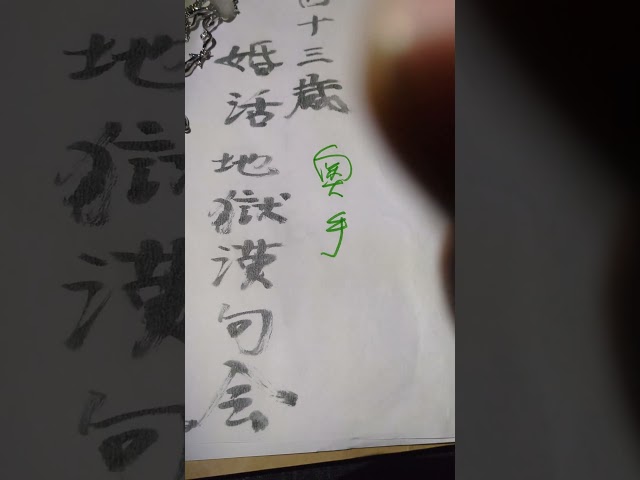 四十三歳
奥手
婚活地獄漢句会